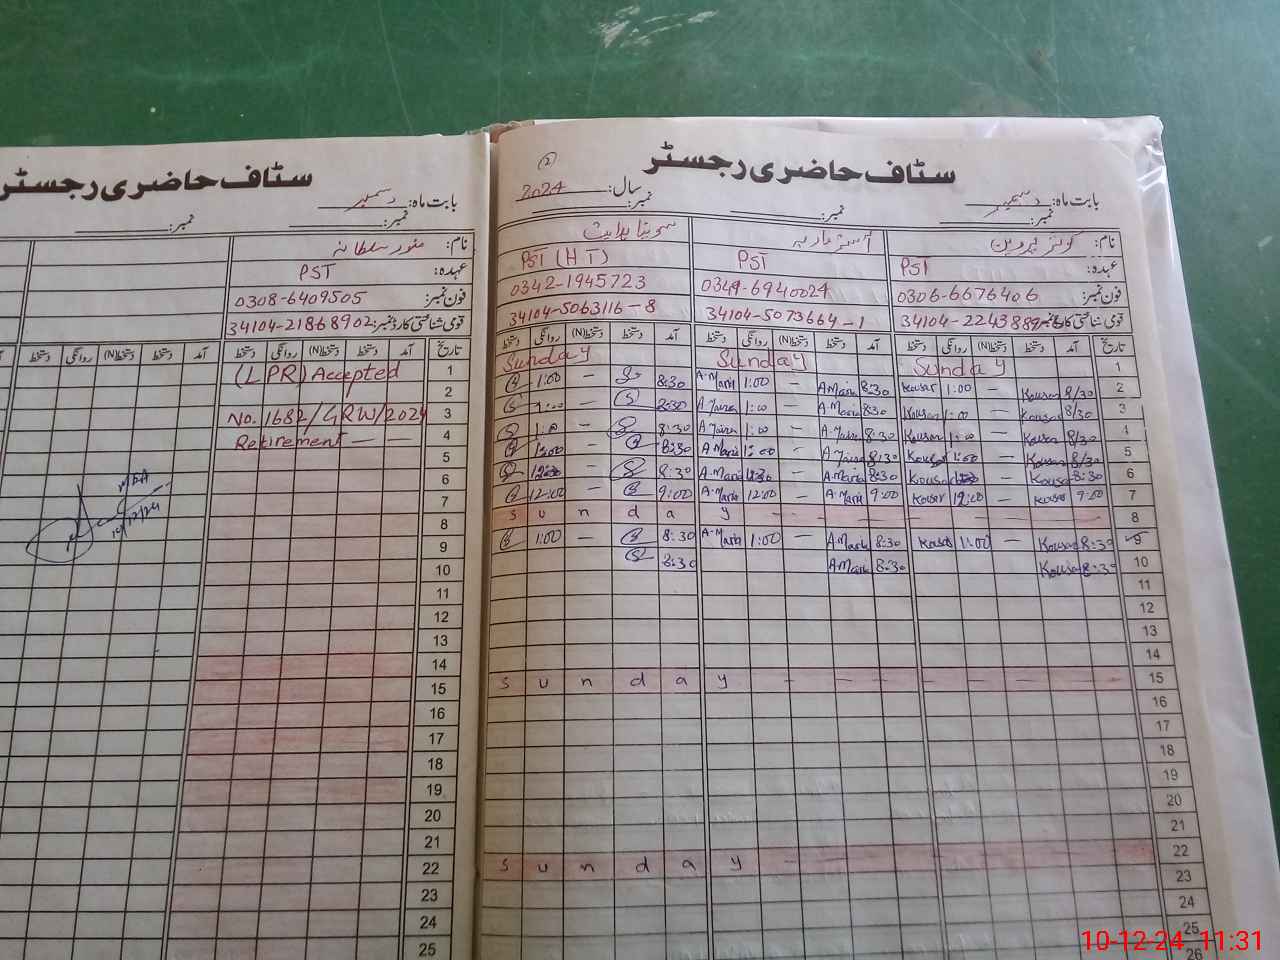 سٹاف حاضری رجسٹر
بابت ماہ: دسمبر
نمبر: نمبر:
نام: منور سلطانہ
عہدہ: PST
فون نمبر: 0308-6409505
قومی شناختی کارڈ نمبر: 34104-2186890
تاریخ آمد دستخط (N)دستخط روانگی دستخط آمد دستخط (N)دستخط روانگی دستخط
(LPR) Accepted 1
2
No. 1682/GRW/2024 3
Retirement — — 4
5
6
7
8
9
10
11
12
13
14
15
16
17
18
19
20
21
22
23
24
25
10/12/24
(2)
سٹاف حاضری رجسٹر
بابت ماہ: دسمبر سال: 2024
نمبر: نمبر: نمبر:
نام: کوثر پروین آسٹر ماریہ
عہدہ: PST PST PST (HT)
فون نمبر: 0306-6676406 0349-6940024 0342-1945723
قومی شناختی کارڈ نمبر: 34104-5073664-1 34104-5063116-8
تاریخ آمد دستخط (N)دستخط روانگی دستخط آمد دستخط (N)دستخط روانگی دستخط آمد دستخط (N)دستخط روانگی دستخط
Sunday Sunday Sunday 1
1:00 — 8:30 A.Maria 1:00 — A.Maria 8:30 Kousar 1:00 — Kousar 8/30 2
1:00 — 8:30 A.Maria 1:00 — A.Maria 8:30 Kousar 1:00 — Kousar 8/30 3
1:00 — 8:30 A.Maria 1:00 — A.Maria 8:30 Kousar 1:00 — Kousar 8/30 4
1:00 — 8:30 A.Maria 1:00 — A.Maria 8:30 Kousar 1:00 — Kousar 8/30 5
12:30 — 8:30 A.Maria 12:30 — A.Maria 8:30 Kousar 12:30 — Kousar 8:30 6
12:00 — 9:00 A.Maria 12:00 — A.Maria 9:00 Kousar 12:00 — Kousar 9:00 7
S u n d a y — — — — — — — — 8
1:00 — 8:30 A.Maria 1:00 — A.Maria 8:30 Kousar 1:00 — Kousar 8:30 9
8:30 A.Maria 8:30 Kousar 8:30 10
11
12
13
14
S u n d a y — — — — — — — — 15
16
17
18
19
20
21
S u n d a y — — — — — — — — 22
23
24
25
26
10-12-24 11:31